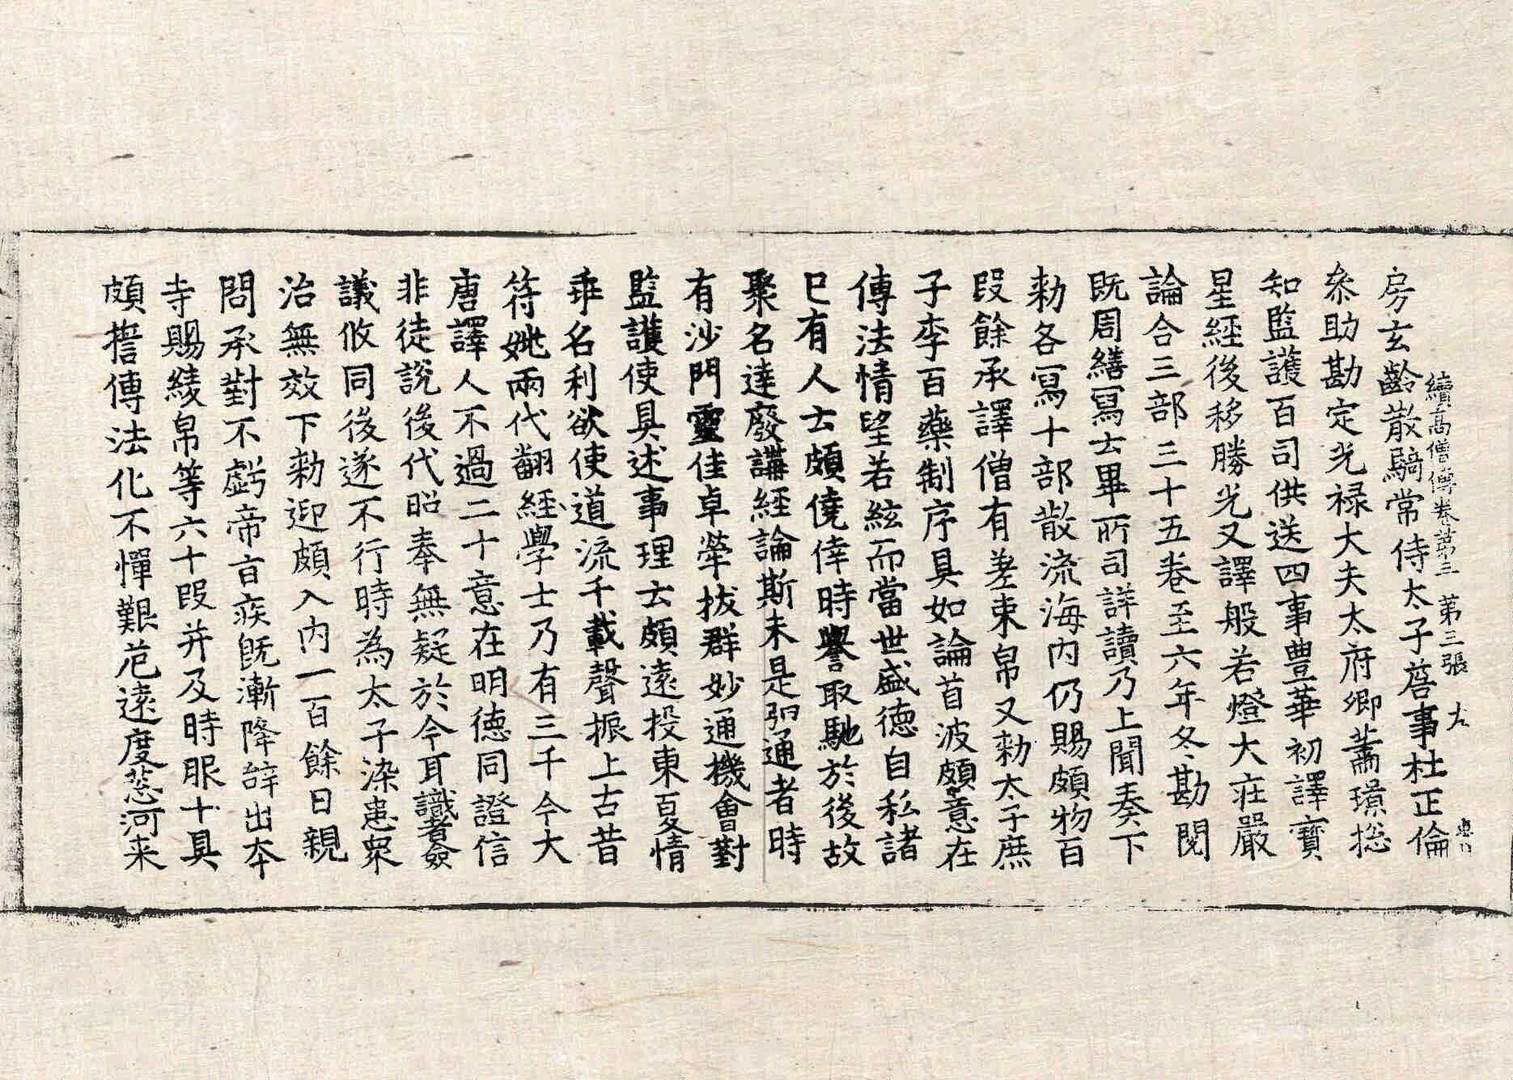 續高僧傳卷第三　第三張　左
房玄齡散騎常侍太子詹事杜正倫
叅助勘定光祿大夫太府卿蕭璟揔
知監護百司供送四事豊華初譯寶
星經後移勝光又譯般若燈大莊嚴
論合三部三十五卷至六年冬勘閱
旣周繕寫云畢所司詳讀乃上聞奏下
勑各寫十部散流海內仍賜頗物百
段餘承譯僧有差束帛又勑太子庶
子李百藥制序具如論首波頗意在
傳法情望若絃而當世盛德自私諸
已有人云頗僥倖時譽取馳於後故
聚名達廢講經論斯未是弘通者時
有沙門靈佳卓犖拔群妙通機會對
監護使具述事理云頗遠投東夏情
乖名利欲使道流千載聲振上古昔
符姚兩代翻經學士乃有三千今大
唐譯人不過二十意在明德同證信
非徒說後代昭奉無疑於今耳識者僉
議攸同後遂不行時爲太子染患衆
治無效下勑迎頗入內一百餘日親
問承對不虧帝旨疾旣漸降辤出本
寺賜綾帛等六十段并及時服十具
頗誓傳法化不憚艱危遠度葱河来